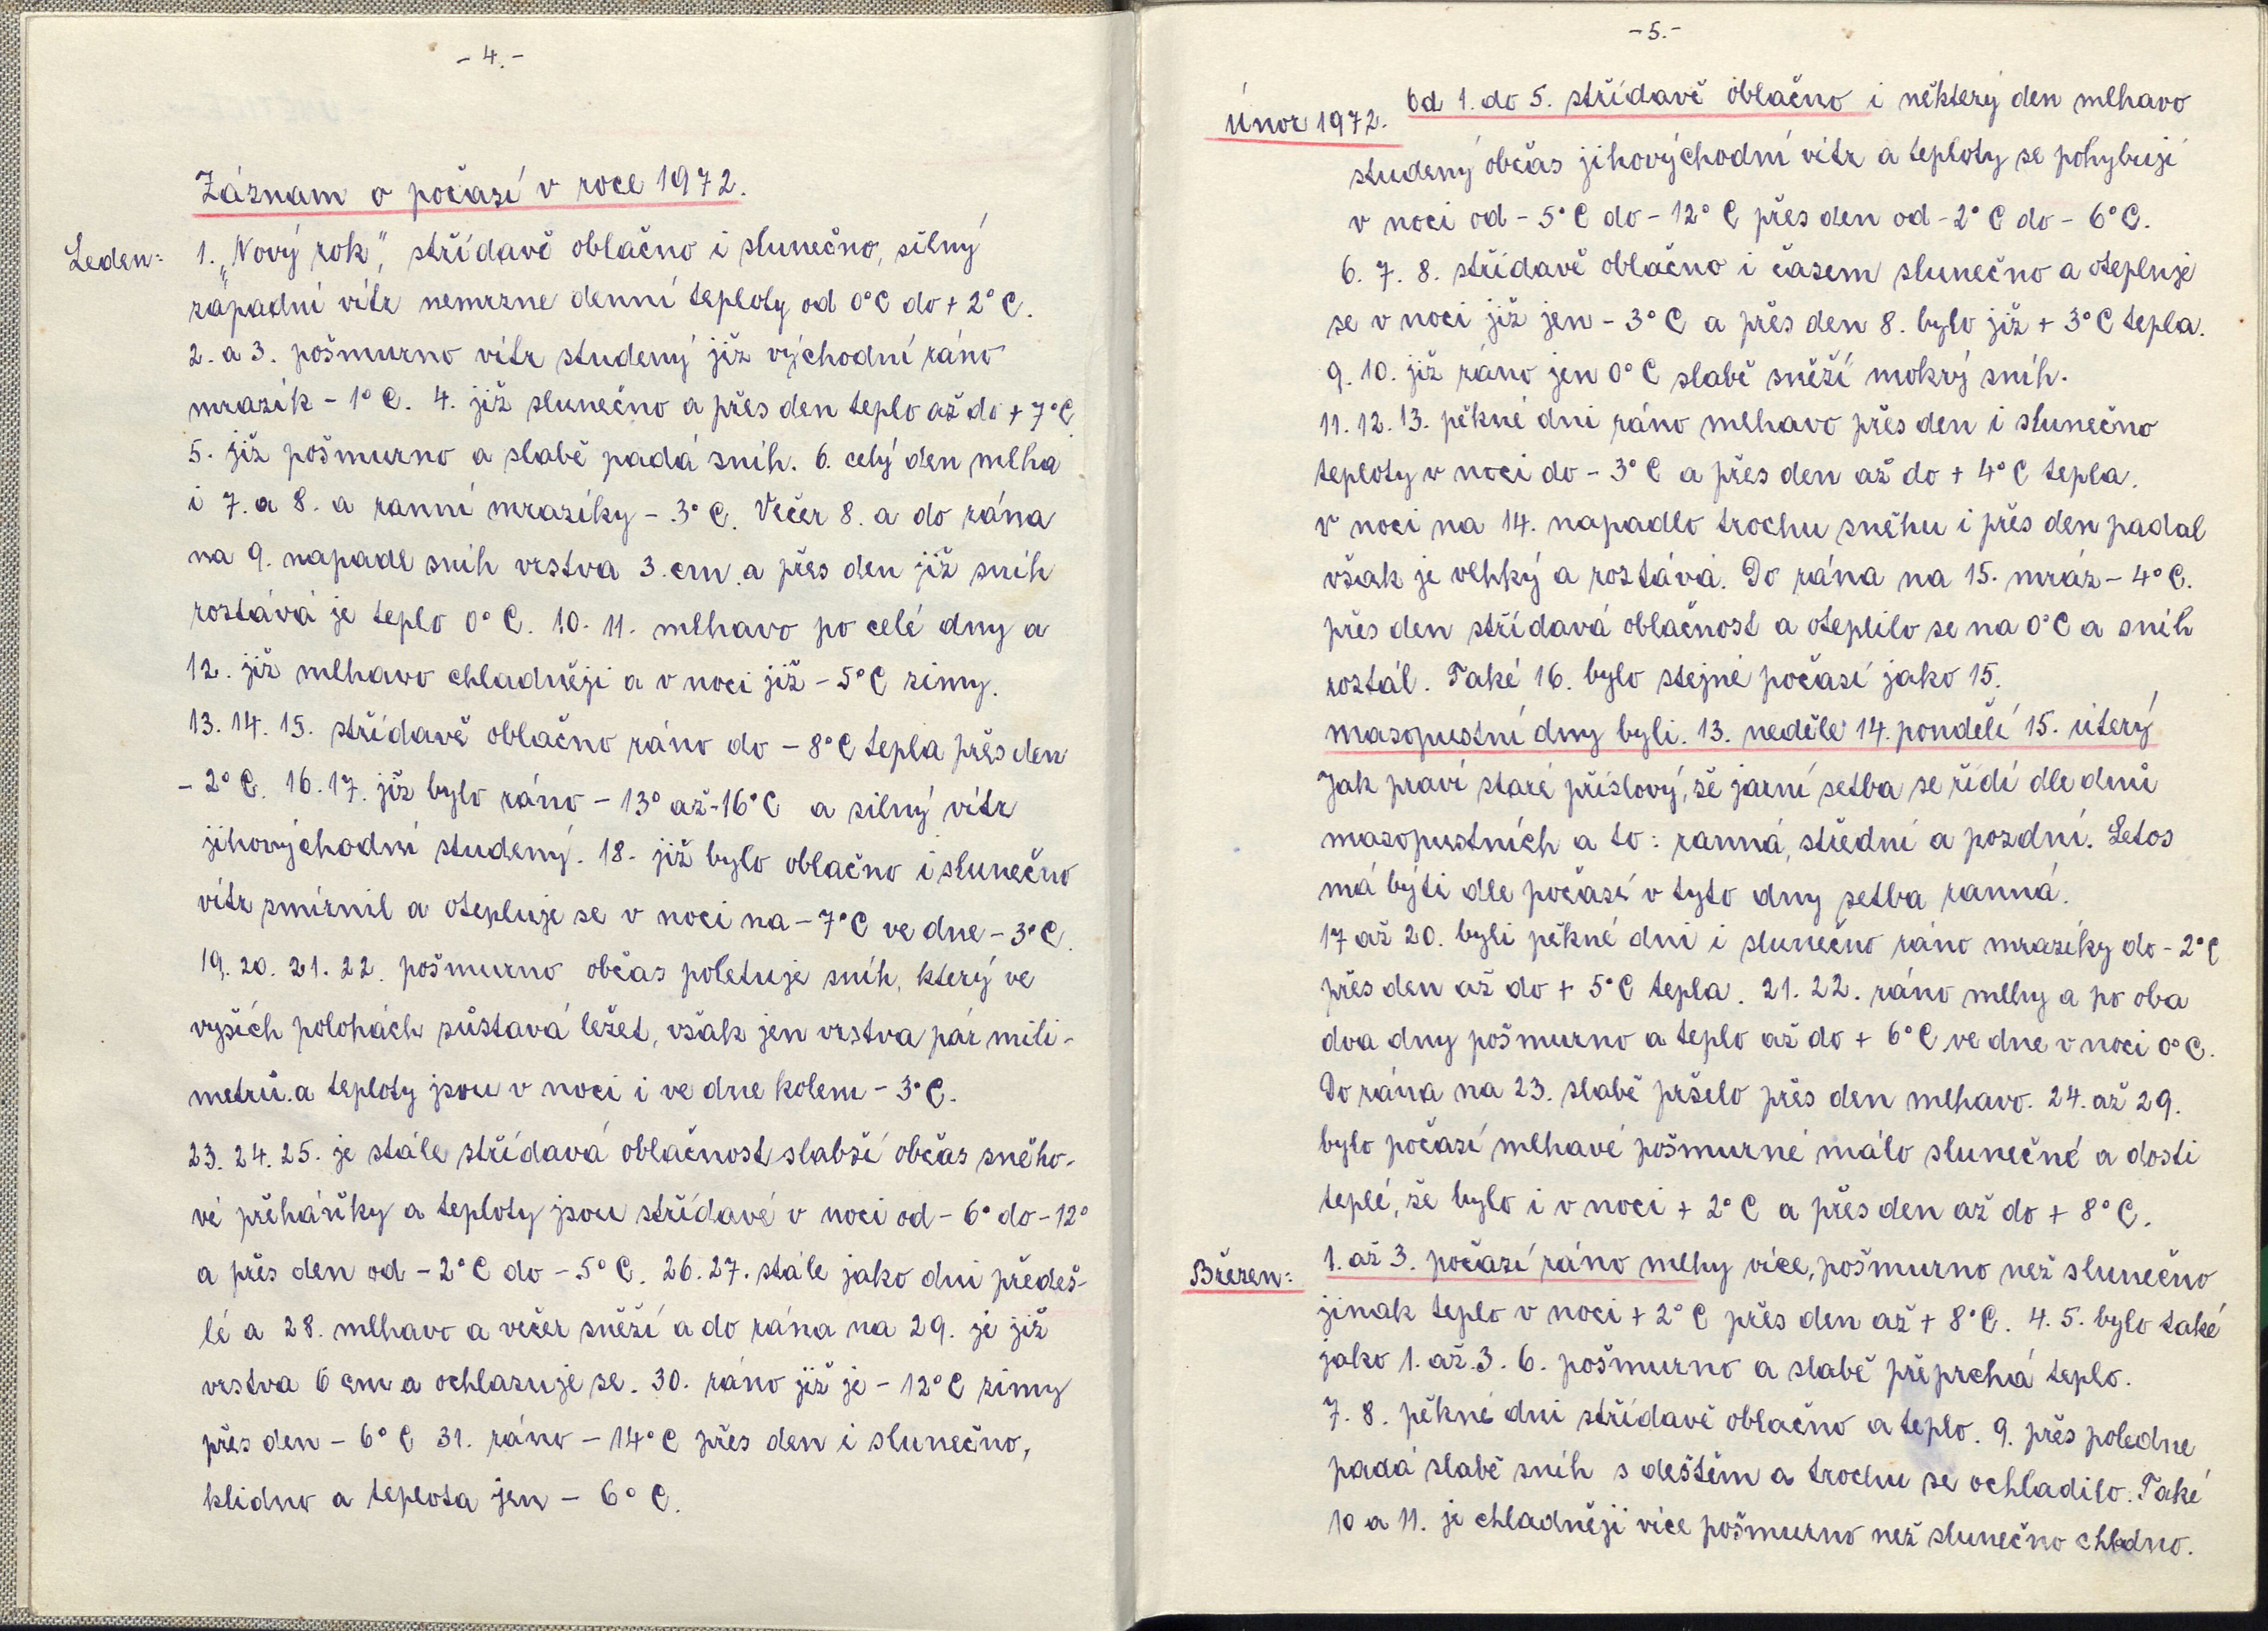 - 4. -
Záznam o počasí v roce 1972.
Leden: 1. „Nový rok", střídavě oblačno i slunečno, silný
západní vítr nemrzne denní teploty od 0°C do + 2°C.
2. a 3. pošmurno vítr studený již východní ráno
mrazík - 1°C. 4. již slunečno a přes den teplo až do + 7°C
5. již pošmurno a slabě padá sníh. 6. celý den mlha
i 7. a 8. a ranní mrazíky - 3°C. Večer 8. a do rána
na 9. napadl sníh vrstva 3. cm. a přes den již sníh
roztává je teplo 0°C. 10. 11. mlhavo po celé dny a
12. již mlhavo chladněji a v noci již - 5°C zimy.
13. 14. 15. střídavě oblačno ráno do - 8°C tepla přes den
- 2°C. 16. 17. již bylo ráno - 13° až -16°C a silný vítr
jihovýchodní studený. 18. již bylo oblačno i slunečno
vítr zmírnil a otepluje se v noci na - 7°C ve dne - 3°C.
19. 20. 21. 22. pošmurno občas poletuje sníh, který ve
vyších polohách zůstavá ležet, však jen vrstva pár mili-
metrů. a teploty jsou v noci i ve dne kolem - 3°C.
23. 24. 25. je stále střídavá oblačnost slabší občas sněho-
vé přeháňky a teploty jsou střídavé v noci od - 6° do - 12°
a přes den od - 2°C do - 5°C. 26. 27. stále jako dni předeš-
lé a 28. mlhavo a večer sněží a do rána na 29. je již
vrstva 6 cm a ochlazuje se. 30. ráno již je - 12°C zimy
přes den - 6°C 31. ráno - 14°C přes den i slunečno,
klidno a teplota jen - 6°C.
- 5. -
Únor 1972. Od 1. do 5. střídavě oblačno i některý den mlhavo
studený občas jihovýchodní vítr a teploty se pohybují
v noci od - 5°C do - 12°C přes den od - 2°C do - 6°C.
6. 7. 8. střídavě oblačno i časem slunečno a otepluje
se v noci již jen - 3°C a přes den 8. bylo již + 3°C tepla.
9. 10. již ráno jen 0°C slabě sněží mokrý sníh.
11. 12. 13. pěkné dni ráno mlhavo přes den i slunečno
teploty v noci do - 3°C a přes den až do + 4°C tepla.
v noci na 14. napadlo trochu sněhu i přes den padal
však je vlhký a roztává. Do rána na 15. mráz - 4°C.
přes den střídavá oblačnost a oteplilo se na 0°C a sníh
roztál. Také 16. bylo stejné počasí jako 15.
masopustní dny byli. 13. neděle 14. pondělí 15. úterý
Jak praví staré příslový, že jarní setba se řídí dle dnů
masopustních a to: ranná, střední a pozdní. Letos
má býti dle počasí v tyto dny setba ranná.
17 až 20. byli pěkné dni i slunečno ráno mrazíky do - 2°C
přes den až do + 5°C tepla. 21. 22. ráno mlhy a po oba
dva dny pošmurno a teplo až do + 6°C ve dne v noci 0°C.
Do rána na 23. slabě pršelo přes den mlhavo. 24. až 29.
bylo počasí mlhavé pošmurné málo slunečné a dosti
teplé, že bylo i v noci + 2°C a přes den až do + 8°C.
Březen: 1. až 3. počazí ráno mlhy více, pošmurno než slunečno
jinak teplo v noci + 2°C přes den až + 8°C. 4. 5. bylo také
jako 1. až. 3. 6. pošmurno a slabě přeprchá teplo.
7. 8. pěkné dni střídavě oblačno a teplo. 9. přes poledne
padá slabě sníh s deštěm a trochu se ochladilo. Také
10 a 11. je chladněji více pošmurno než slunečno chladno.